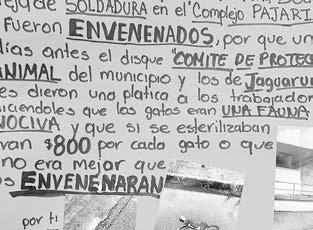 de SOLDADURA en el "Complejo PAJARI
Fueron ENVENENADOS, por que un
días antes el disque "COMITE DE PROTEC
ANIMAL del municipio y los de Jaguarun
es dieron una platica a los trabajador
iciendoles que los gatos eran UNA FAUNA
NOCIVA y que si se esterilizaban
van $800 por cada gato o que
no era mejor que
os ENVENENARAN
por ti